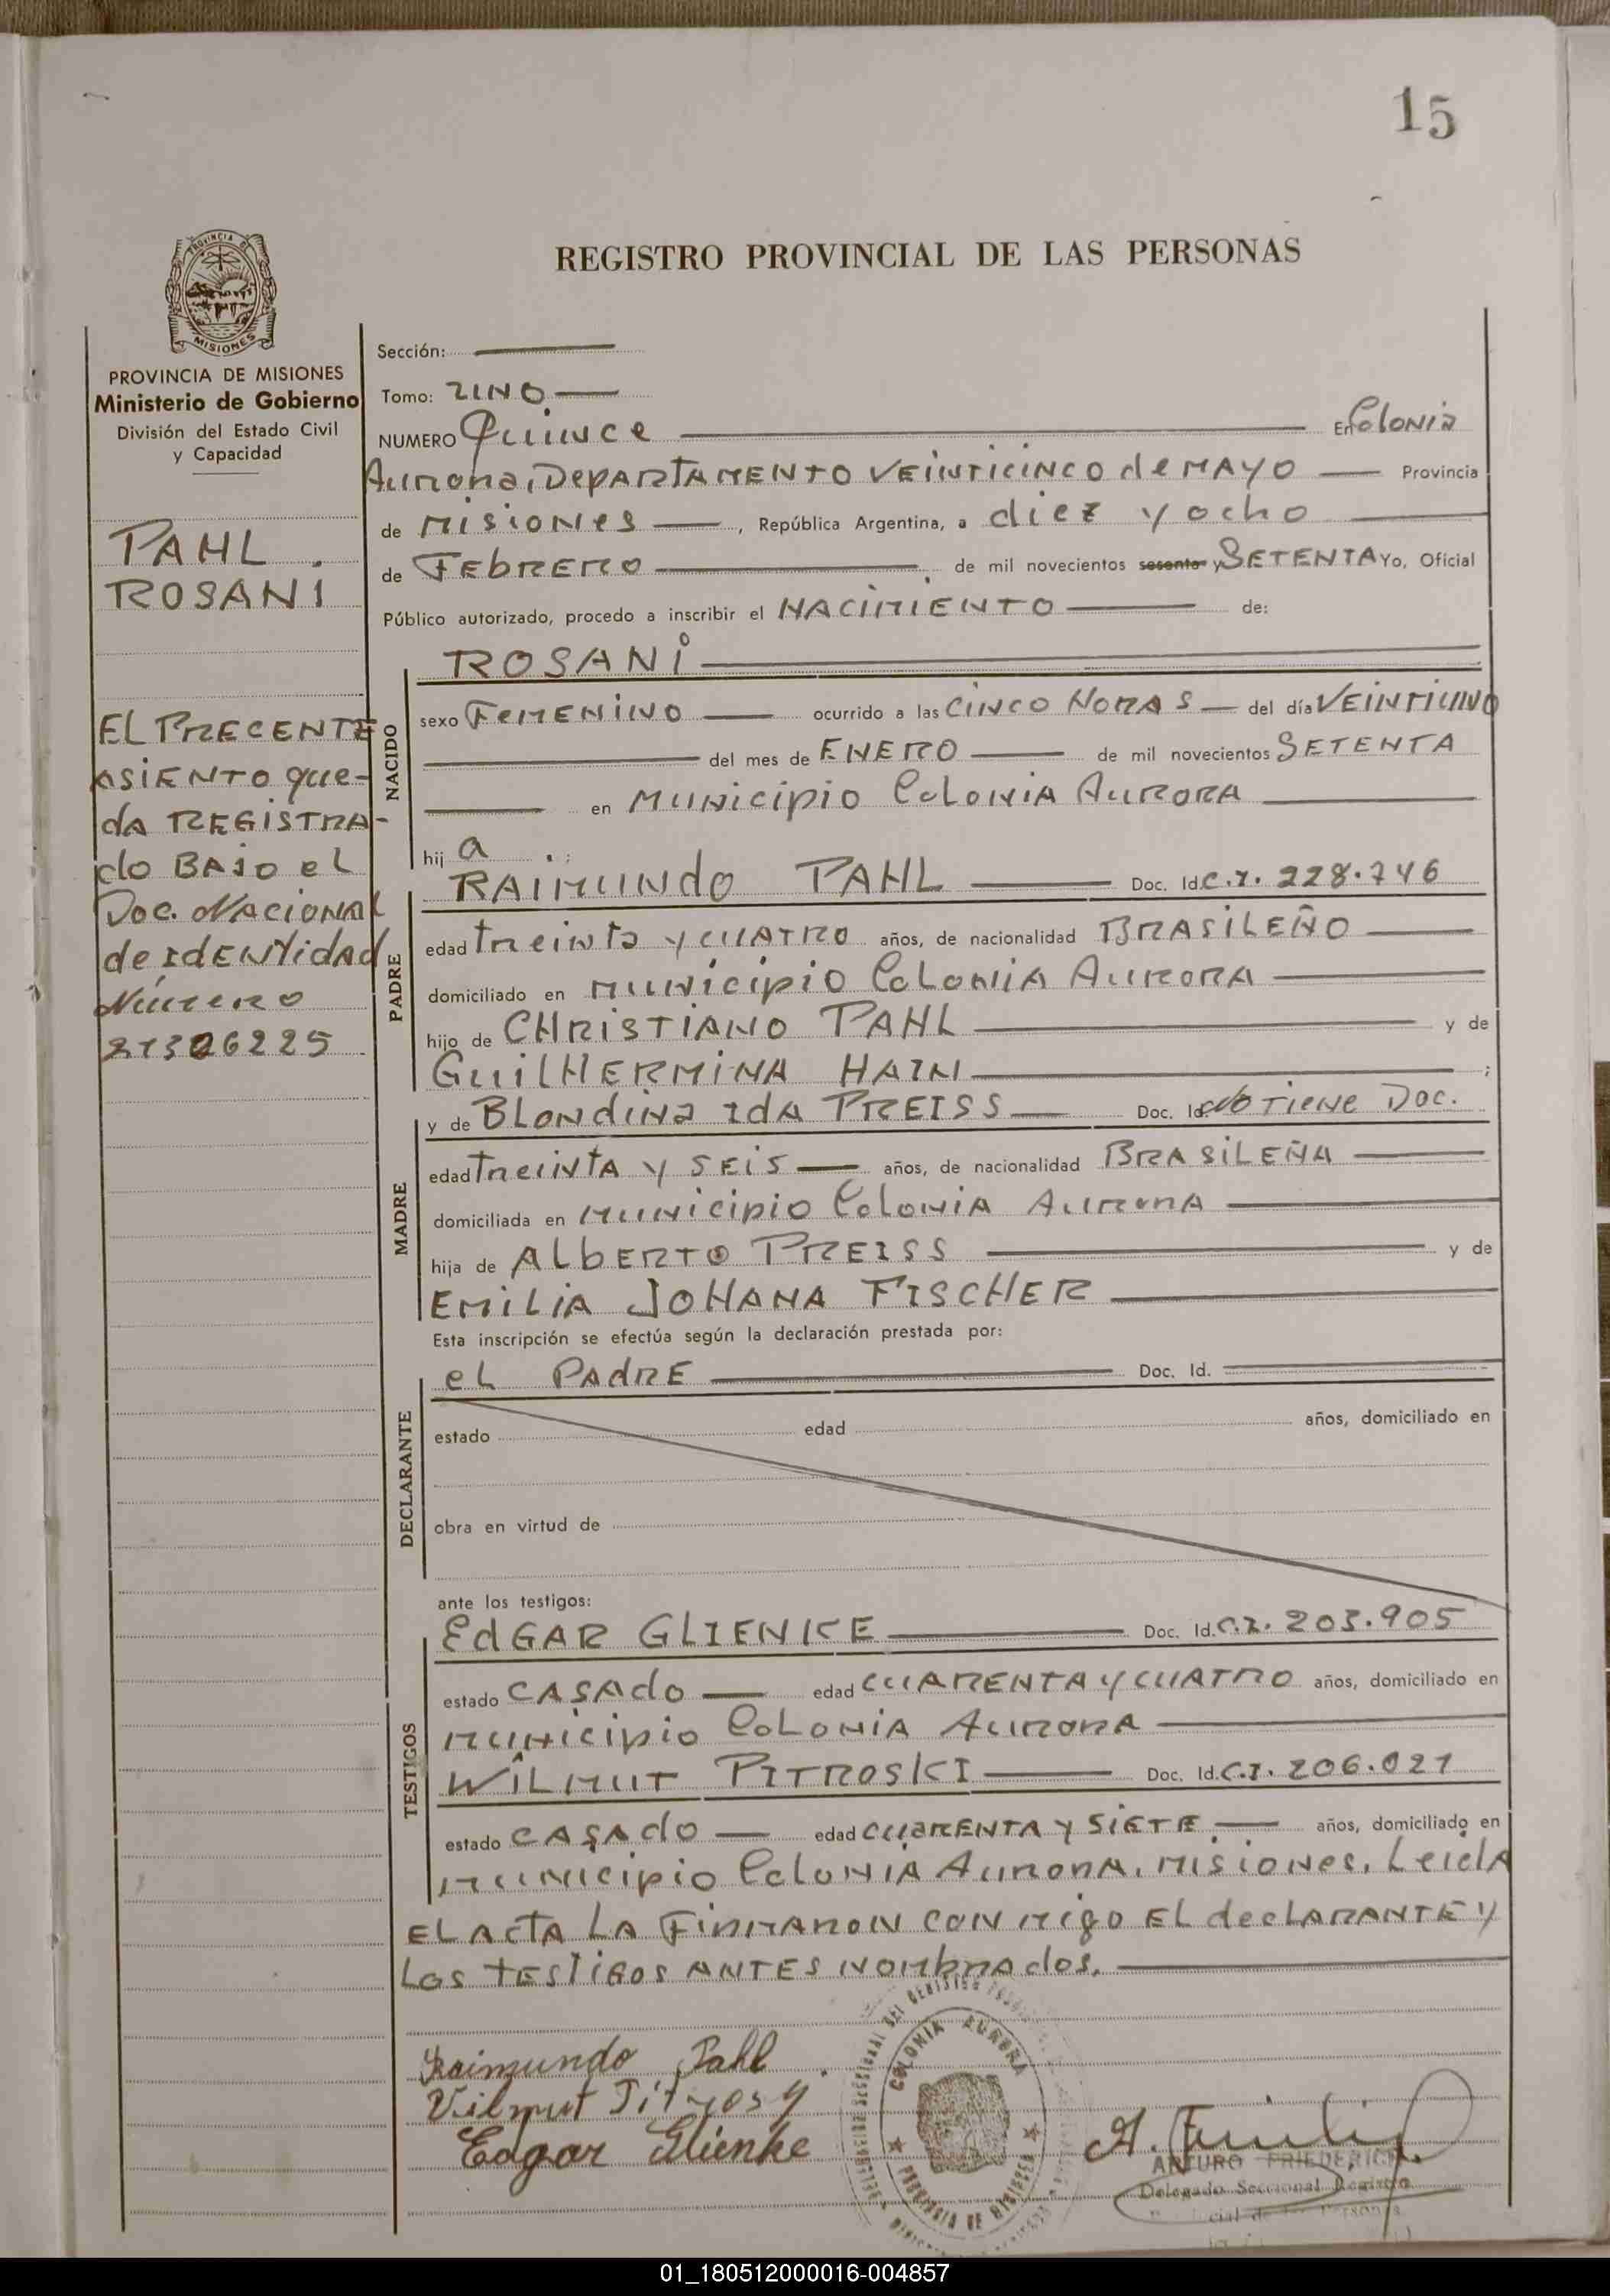 15
PROVINCIA DE
MISIONES
REGISTRO PROVINCIAL DE LAS PERSONAS
PROVINCIA DE MISIONES
Ministerio de Gobierno
División del Estado Civil
y Capacidad
PAHL
ROSANI
EL PRECENTE
ASIENTO que-
dA REGISTRA-
do BAJO eL
Doc. NACIONAL
de IdENTidAd
Número
21306225
Sección:
Tomo: UNO
NUMERO Quince En Colonia
Aurora, DepARTAMENTO VEINTICINCO de MAYO Provincia
de Misiones, República Argentina, a diez y ocho
de FEbRERO, de mil novecientos sesenta y SETENTA Yo, Oficial
Público autorizado, procedo a inscribir el NACIMIENTO de:
ROSANI
NACIDO
sexo FEMENINO ocurrido a las CINCO HORAS del día VEINTIUNO
del mes de ENERO de mil novecientos SETENTA
en Municipio Colonia AURORA
hij a
PADRE
RAIMUNdo PAHL Doc. Id. C.I. 228.746
edad treinta y CUATRO años, de nacionalidad BRASILEÑO
domiciliado en municipio Colonia AURORA
hijo de CHRISTIANO PAHL y de
GuilHERMINA HAIN;
MADRE
y de BLondina IdA PREISS Doc. Id. No TIENE Doc.
edad treinta y SEIS años, de nacionalidad BRASILEÑA
domiciliada en municipio Colonia Aurora
hija de ALbERTO PREISS y de
EMILIA JOHANA FISCHER
Esta inscripción se efectúa según la declaración prestada por:
DECLARANTE
eL PAdRE Doc. Id.
estado edad años, domiciliado en
obra en virtud de
ante los testigos:
TESTIGOS
EdGAR GLIENKE Doc. Id. C.I. 203.905
estado CASAdo edad CUARENTA y CUATRO años, domiciliado en
municipio Colonia Aurora
WILMUT PITROSKI Doc. Id. C.I. 206.021
estado CASAdo edad CUARENTA y SIETE años, domiciliado en
municipio Colonia Aurora, Misiones. Leida
EL ACTA LA FIRMARON CON migo EL decLARANTE y
Los TESTIGOS ANTES NOMbRAdos.
Raimundo Pahl
Vilmut Pitrosy
Edgar Glienke
COLONIA AURORA
PROVINCIA DE MISIONES
ARTURO FRIEDERICH
Delegado Seccional Registro
01_180512000016-004857